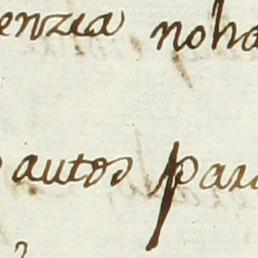 enzia noha
autos para